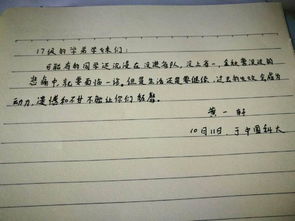 17级的学弟学妹们：
可能有的同学还沉浸在没进省队，没上省一，金牌梦没的
悲痛中，我要面临一译。但是生活还是要继续，过去的失败会成为
动力，遗憾和不甘不能让你们颓靡。
黄一轩
10月11日，于中国科大